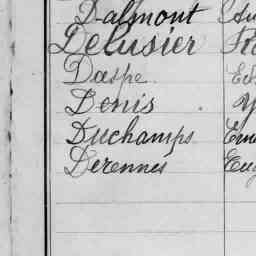 Dalmont
Delusier
Daspe
Denis
Duchamps
Derennes